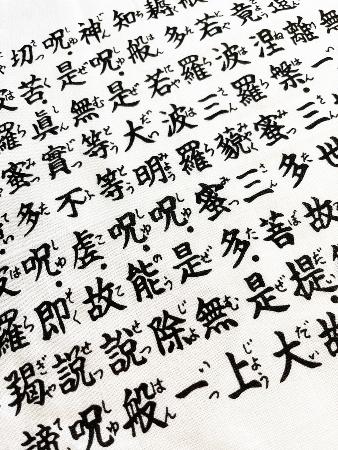 遠離一
竟涅槃三世
若波羅蜜多故
多羅三藐三菩提故
知般若波羅蜜多是大
神呪是大明呪是無上
呪是無等等呪能除一
切苦眞實不虚故説般
羅蜜多呪即説呪
羅羯諦